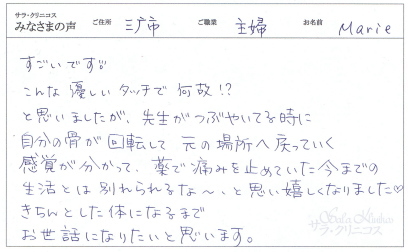 サラ・クリニコス
みなさまの声 ご住所 三戸市 ご職業 主婦 お名前 Marie
すごいです!!
こんな優しいタッチで何故!?
と思いましたが、先生がつぶやいてる時に
自分の骨が回転して元の場所へ戻っていく
感覚が分かって、薬で痛みを止めていた今までの
生活とは別れられるな〜、と思い嬉しくなりました♡
きちんとした体になるまで
お世話になりたいと思います。
サラ・クリニコス